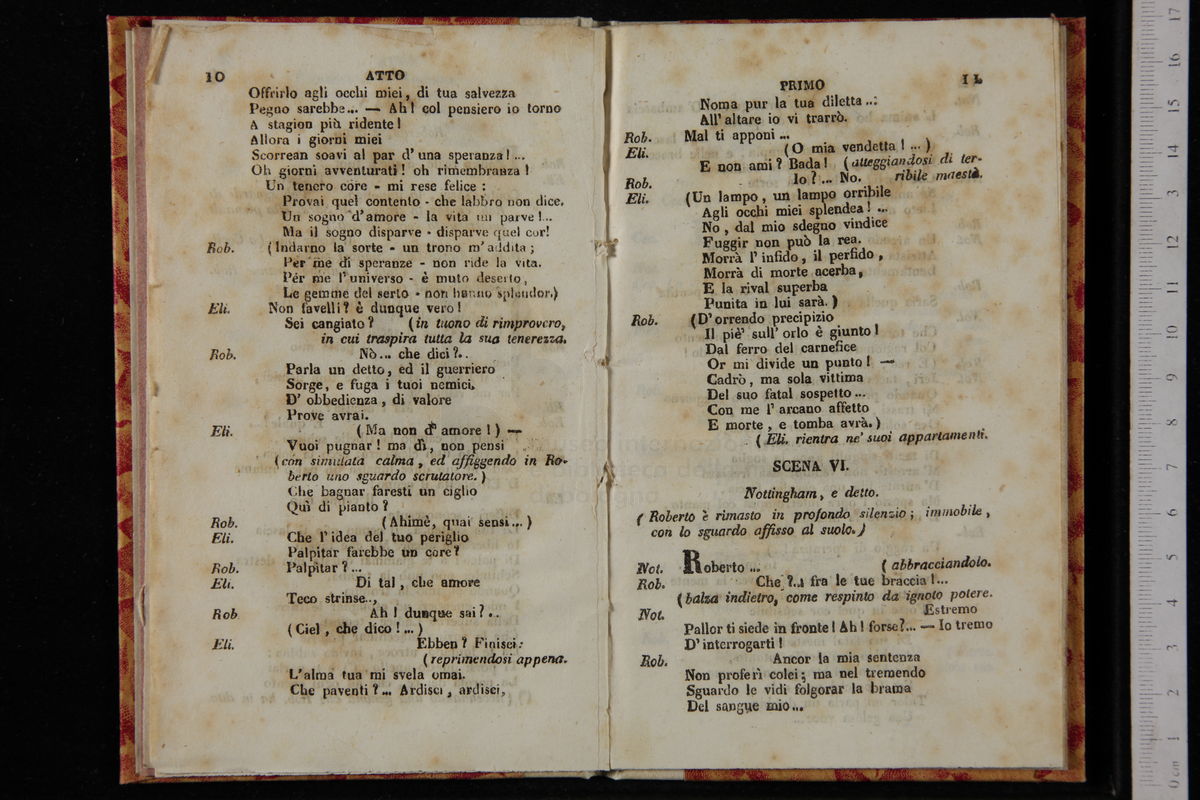 10
ATTO
Offrirlo agli occhi miei, di tua salvezza
Pegno sarebbe... — Ah! col pensiero io torno
A stagion più ridente!
Allora i giorni miei
Scorrean soavi al par d'una speranza!...
Oh giorni avventurati! oh rimembranza!
Un tenero core - mi rese felice:
Provai quel contento - che labbro non dice.
Un sogno d'amore - la vita mi parve!...
Ma il sogno disparve - disparve quel cor!
Rob. (Indarno la sorte - un trono m'addita;
Per me di speranze - non ride la vita.
Pér me l'universo - è muto deserto,
Le gemme del serto - non hanno splendor.)
Eli. Non favelli? è dunque vero!
Sei cangiato? (in tuono di rimprovero,
in cui traspira tutta la sua tenerezza.
Rob. Nò... che dici?..
Parla un detto, ed il guerriero
Sorge, e fuga i tuoi nemici.
D'obbedienza, di valore
Prove avrai.
Eli. (Ma non d'amore!) —
Vuoi pugnar! ma dì, non pensi
(con simulata calma, ed affiggendo in Ro-
berto uno sguardo scrutatore.)
Che bagnar faresti un ciglio
Quì di pianto?
Rob. (Ahimè, quai sensi...)
Eli. Che l'idea del tuo periglio
Palpitar farebbe un core?
Rob. Palpitar?...
Eli. Di tal, che amore
Teco strinse..,
Rob Ah! dunque sai?..
(Ciel, che dico!...)
Eli. Ebben? Finisci:
(reprimendosi appena.
L'alma tua mi svela omai.
Che paventi?... Ardisci, ardisci,
PRIMO
11
Noma pur la tua diletta..:
All'altare io vi trarrò.
Rob. Mal ti apponi...
Eli. (O mia vendetta!...)
E non ami? Bada! (atteggiandosi di ter-
Rob. Io?... No. ribile maestà.
Eli. (Un lampo, un lampo orribile
Agli occhi miei splendea!...
No, dal mio sdegno vindice
Fuggir non può la rea.
Morrà l'infido, il perfido,
Morrà di morte acerba,
E la rival superba
Punita in lui sarà.)
Rob. (D'orrendo precipizio
Il piè' sull'orlo è giunto!
Dal ferro del carnefice
Or mi divide un punto! —
Cadrò, ma sola vittima
Del suo fatal sospetto...
Con me l'arcano affetto
E morte, e tomba avrà.)
(Eli. rientra ne' suoi appartamenti.
SCENA VI.
Nottingham, e detto.
(Roberto è rimasto in profondo silenzio; immobile,
con lo sguardo affisso al suolo.)
Not. Roberto... (abbracciandolo.
Rob. Che?.. fra le tue braccia!...
(balza indietro, come respinto da ignoto potere.
Not. Estremo
Pallor ti siede in fronte! Ah! forse?... — Io tremo
D'interrogarti!
Rob. Ancor la mia sentenza
Non proferì colei; ma nel tremendo
Sguardo le vidi folgorar la brama
Del sangue mio...